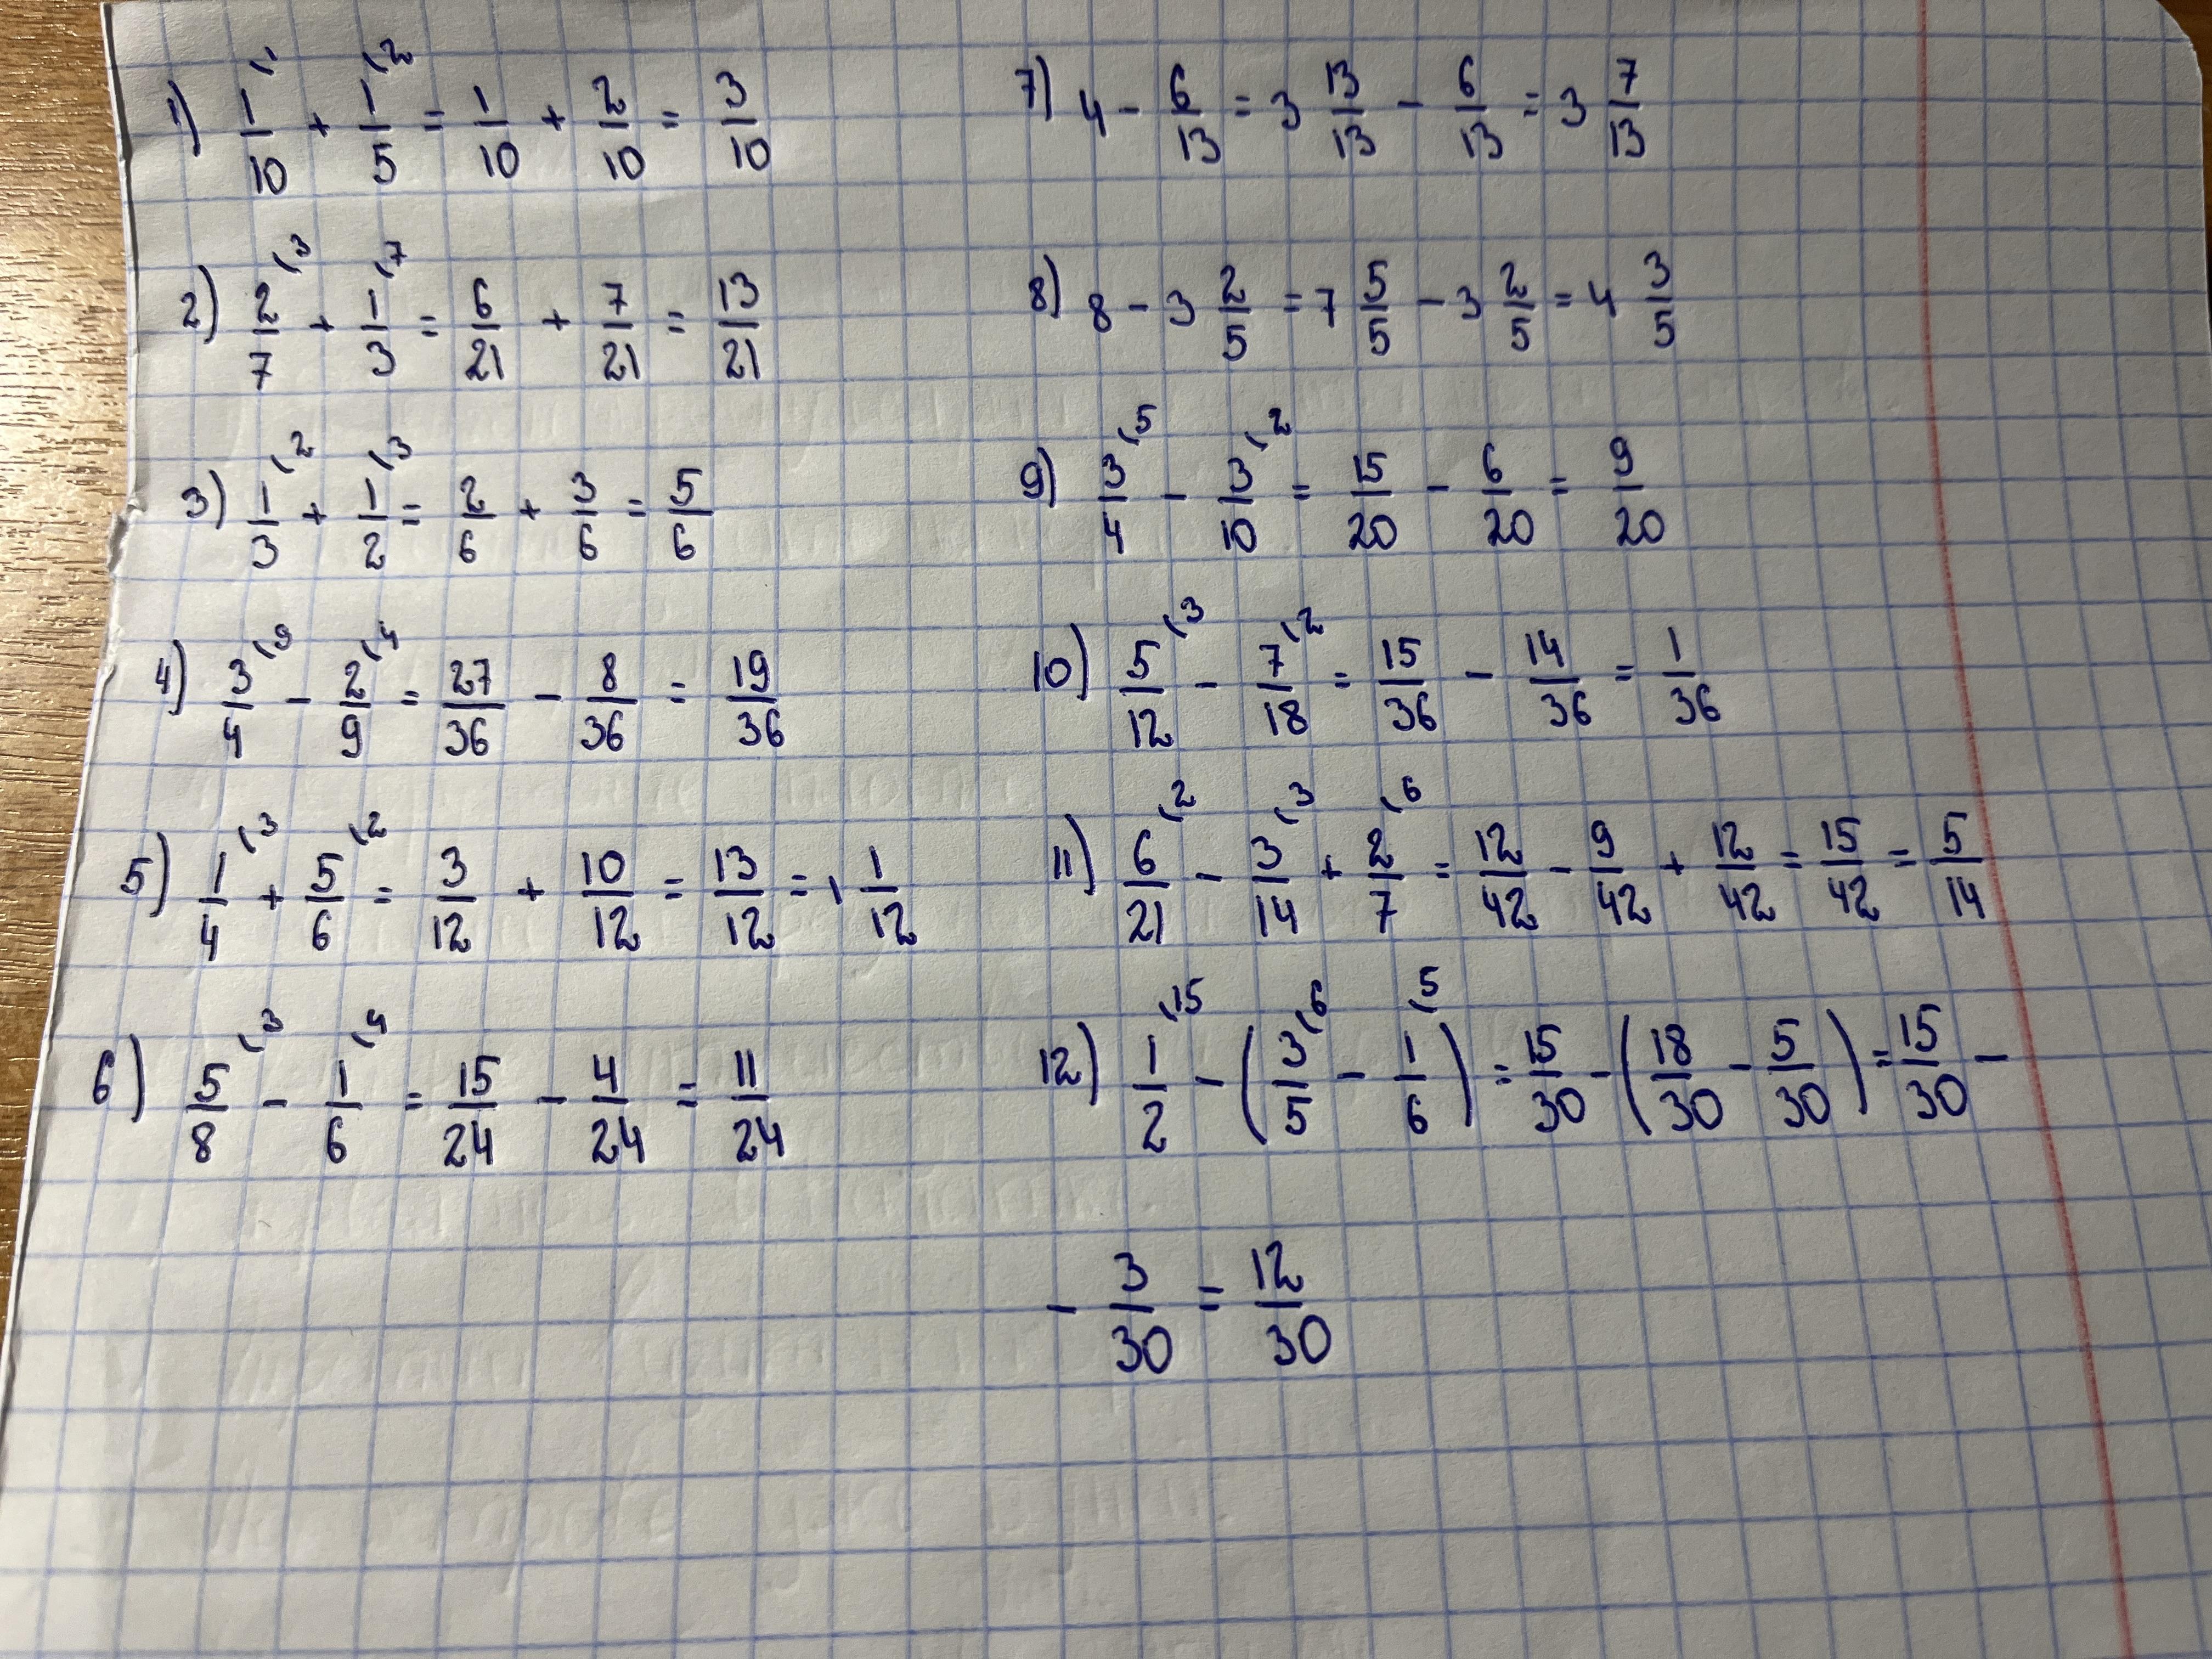 1) 1/10 + 1/5 = 1/10 + 2/10 = 3/10
2) 2/7^(3 + 1/3^(7 = 6/21 + 7/21 = 13/21
3) 1/3^(2 + 1/2^(3 = 2/6 + 3/6 = 5/6
4) 3/4^(9 - 2/9^(4 = 27/36 - 8/36 = 19/36
5) 1/4^(3 + 5/6^(2 = 3/12 + 10/12 = 13/12 = 1 1/12
6) 5/8^(3 - 1/6^(4 = 15/24 - 4/24 = 11/24
7) 4 - 6/13 = 3 13/13 - 6/13 = 3 7/13
8) 8 - 3 2/5 = 7 5/5 - 3 2/5 = 4 3/5
9) 3/4^(5 - 3/10^(2 = 15/20 - 6/20 = 9/20
10) 5/12^(3 - 7/18^(2 = 15/36 - 14/36 = 1/36
11) 6/21^(2 - 3/14^(3 + 2/7^(6 = 12/42 - 9/42 + 12/42 = 15/42 = 5/14
12) 1/2^(15 - (3/5^(6 - 1/6^(5) = 15/30 - (18/30 - 5/30) = 15/30 -
- 3/30 = 12/30